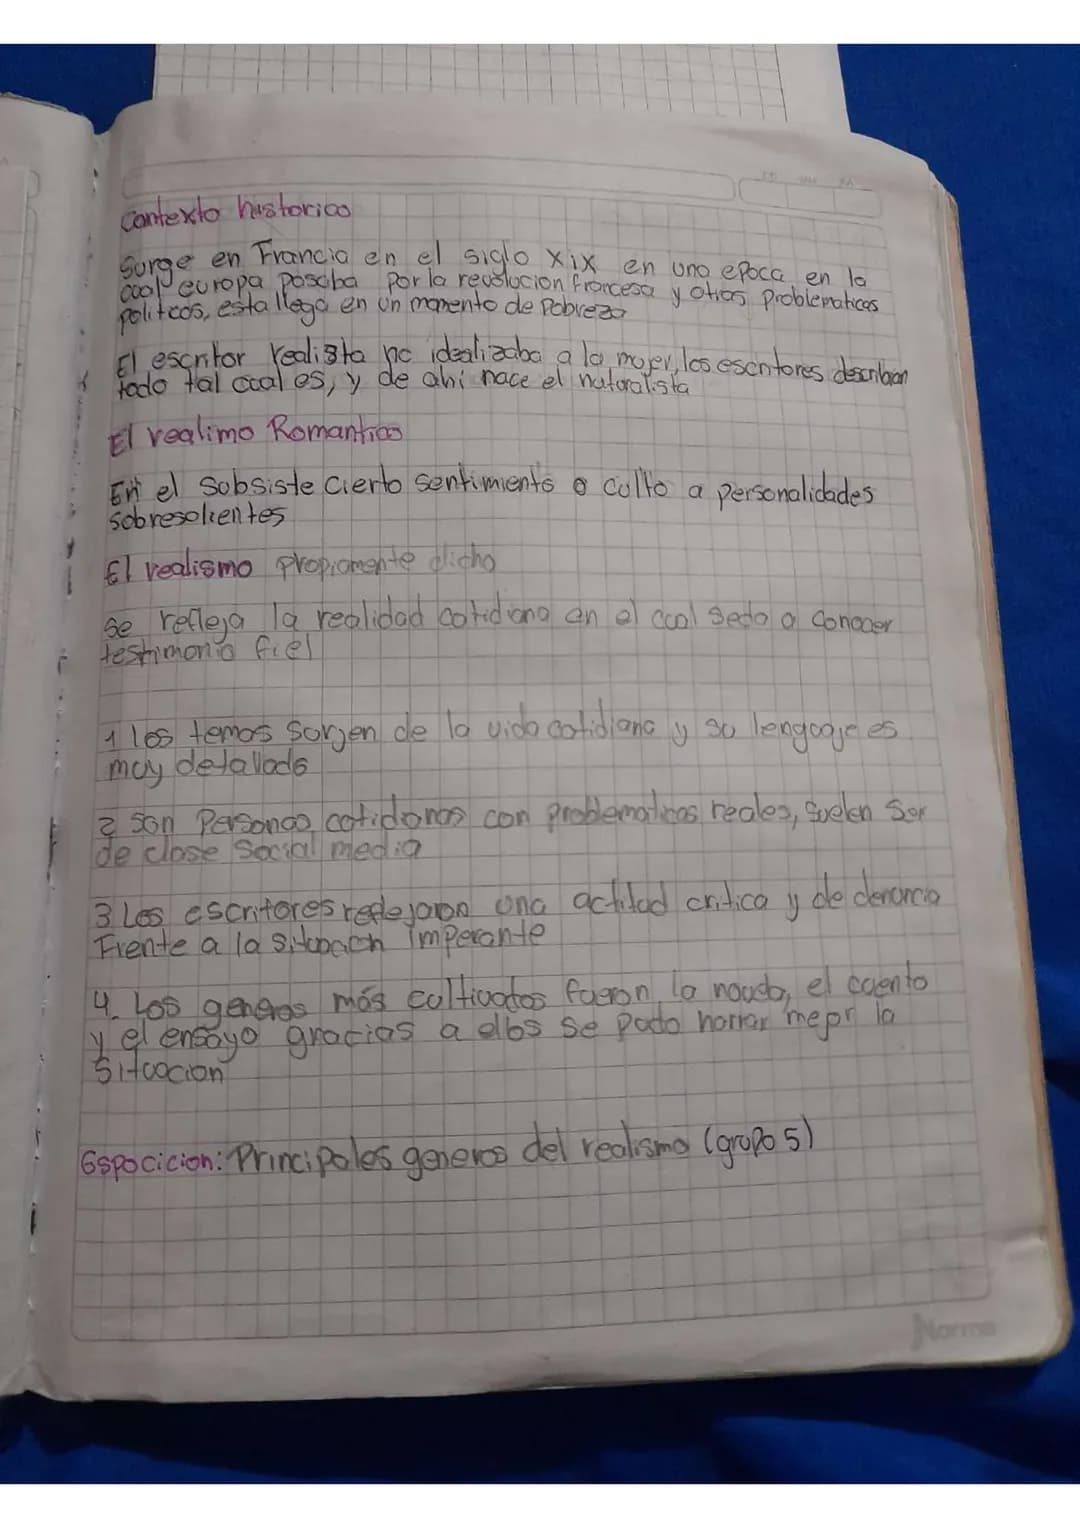 Contexto historico
Surge en Francia en el siglo xix en una epoca en la
cual europa pasaba por la revolucion francesa y otras problematicas
politicas, esta llega en un momento de Pobreza
El escritor realista no idealizaba a la mujer, los escritores describian
todo tal cual es, y de ahi nace el naturalista
El realimo Romantico
En el subsiste cierto sentimiento o culto a personalidades
sobresalientes
El realismo propiamente dicho
se refleja la realidad cotidiana en el cual seda a conocer
testimonio fiel
1 los temas surjen de la vida cotidiana y su lenguaje es
muy detallado
2 son Personas cotidianas con problematicas reales, suelen ser
de clase social media
3 Los escritores reflejaron una actitud critica y de denuncia
Frente a la situacion imperante
4. Los generos más cultivados fueron la novela, el cuento
y el ensayo gracias a ellos se pudo narrar mejor la
Situacion
Espocicion: Principales generos del realismo (grupo 5)
Norma